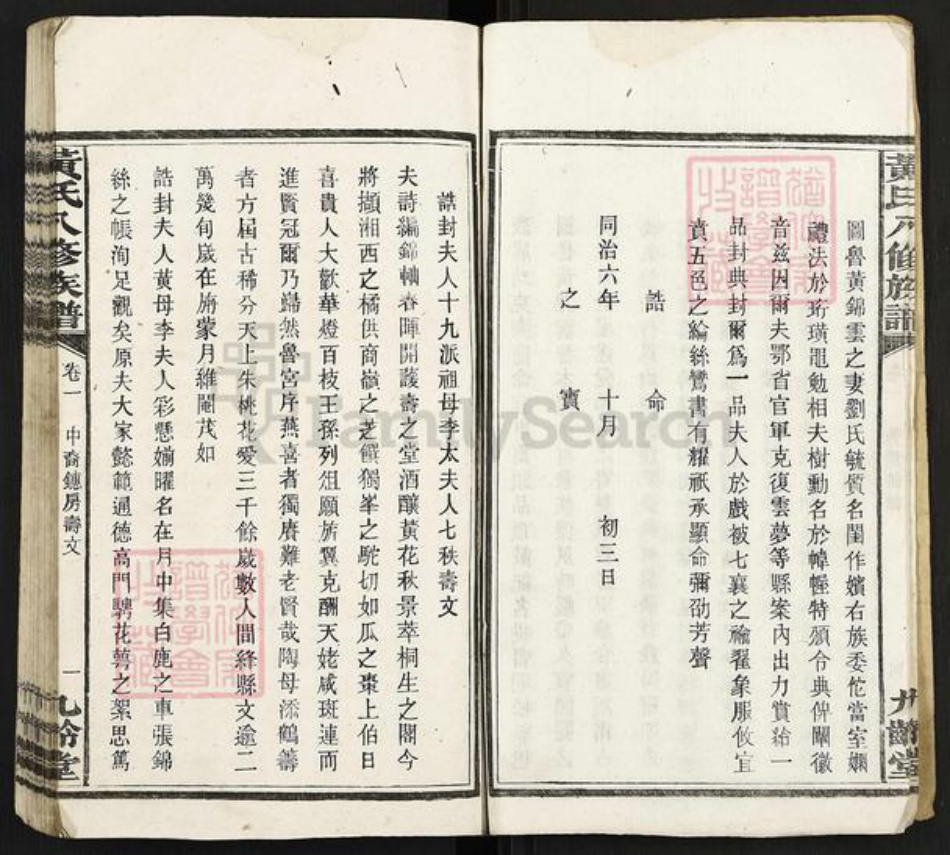 黃氏八修族譜
九齡堂
圖魯黃錦雲之妻劉氏毓質名閨作嬪右族委佗當室嫻
禮法於珩璜黽勉相夫樹勳名於幃幄特頒令典俾闡徽
音茲因爾夫鄂省官軍克復雲夢等縣案內出力賞給一
品封典封爾爲一品夫人於戲被七襄之褕翟象服攸宜
賁五色之綸絲鸞書有耀祇承顯命彌劭芳聲
誥命
同治六年 十月 初三日
之寶
誥封夫人十九派祖母李太夫人七秩壽文
夫詩編錦軸春暉開護壽之堂酒釀黃花秋景萃桐生之閣今
將擷湘西之橘供商嶺之芝饌獨峯之駝切如瓜之棗上伯日
喜貴人大歡華燈百枝王孫列俎願旂翼克酬天姥咸斑連而
進賢冠爾乃巋然魯宮序燕喜者獨賡難老賢哉陶母添鶴籌
者方屆古稀分天上朱桃花愛三千餘歲數人間絳縣文逾二
萬幾旬歲在旃蒙月維閹茂如
誥封夫人黃母李夫人彩懸婺曜名在月中集白鹿之車張錦
絲之帳洵足觀矣原夫大家懿範通德高門騁花萼之絮思篤
黃氏八修族譜
卷一
中裔鏸房壽文
一
九齡堂
FamilySearch